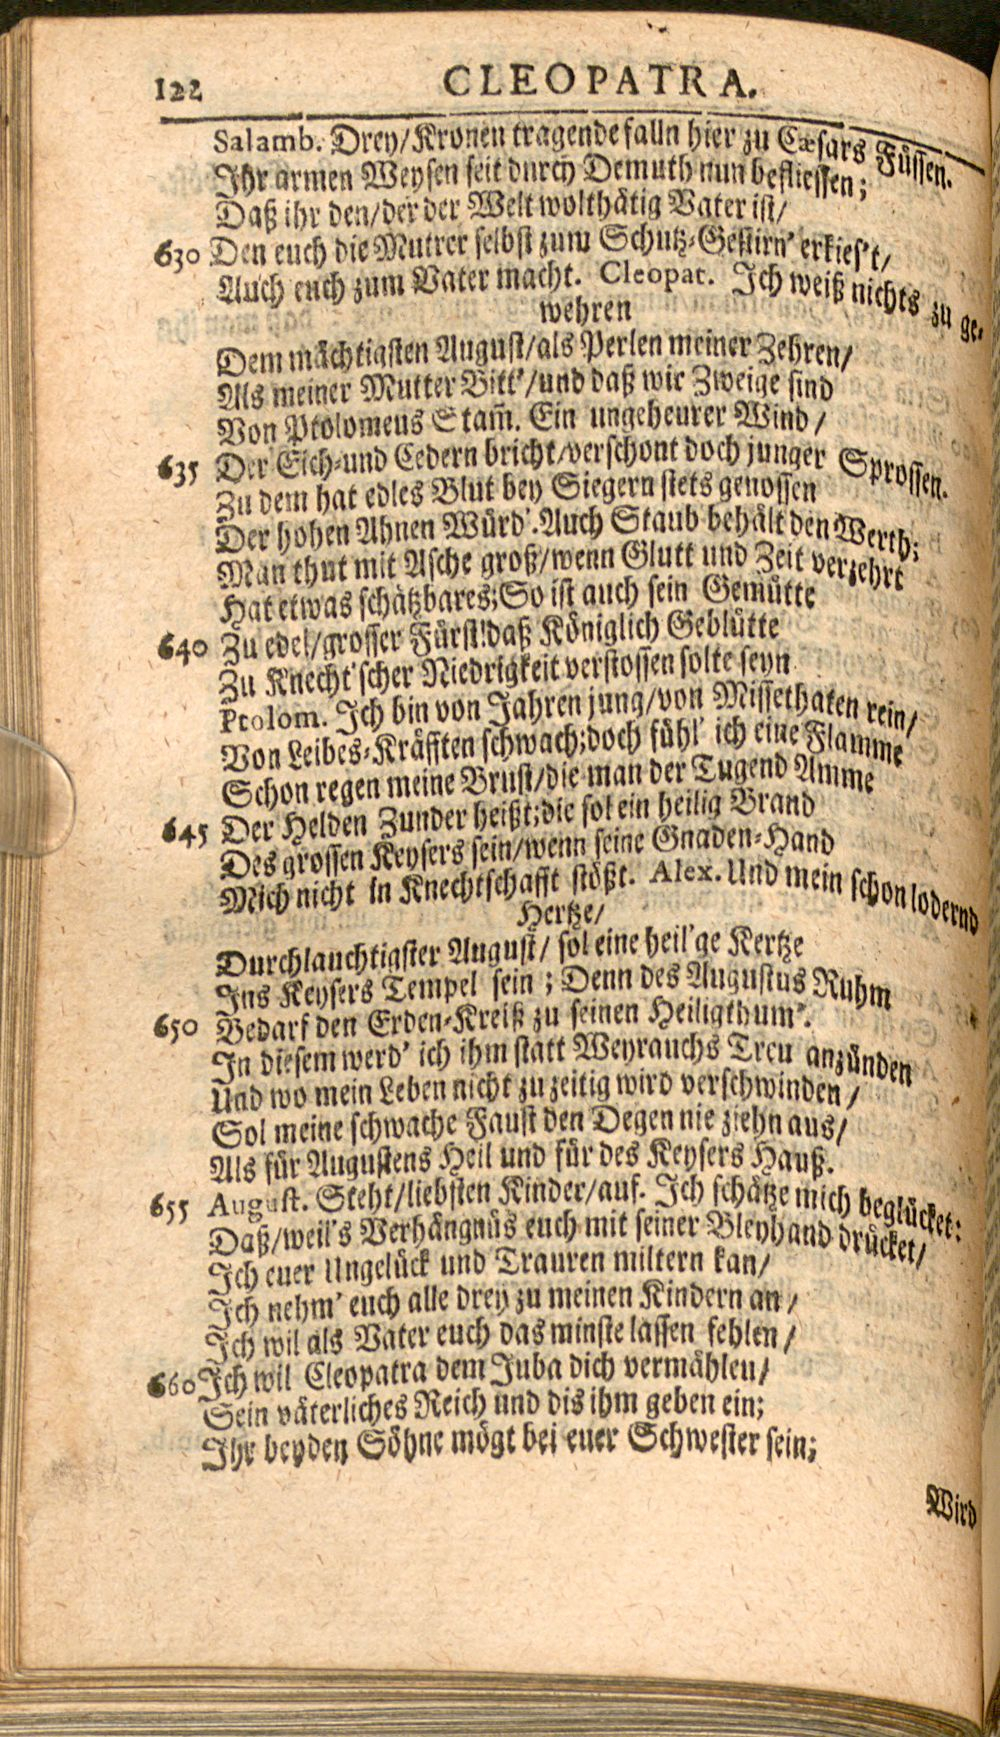 122 CLEOPATRA.
Salamb. Drey/Kronen tragende falln hier zu Cæsars Füssen.
Ihr armen Weysen seit durch Demuth nun befliessen;
Daß ihr den/der der Welt wolthätig Vater ist/
630 Den euch die Mutrer selbst zum Schutz-Gestirn' erkies't/
Auch euch zum Vater macht. Cleopat. Ich weiß nichts zu ge-
wehren
Dem mächtigsten August/als Perlen meiner Zehren/
Als meiner Mutter Bitt'/und daß wir Zweige sind
Von Ptolomeus Stam̃. Ein ungeheurer Wind/
635 Der Eich-und Cedern bricht/verschont doch junger Sprossen.
Zu dem hat edles Blut bey Siegern stets genossen
Der hohen Ahnen Würd'. Auch Staub behält den Werth;
Man thut mit Asche groß/wenn Glutt und Zeit verzehrt
Hat etwas schätzbares; So ist auch sein Gemütte
640 Zu edel/grosser Fürst! daß Königlich Geblütte
Zu Knecht'scher Niedrigkeit verstossen solte seyn.
Ptolom. Ich bin von Jahren jung/von Missethaten rein/
Von Leibes-Kräfften schwach; doch fühl' ich eine Flamme
Schon regen meine Brust/die man der Tugend Amme
645 Der Helden Zunder heißt; die sol ein heilig Brand
Des grossen Keysers sein/wenn seine Gnaden-Hand
Mich nicht in Knechtschafft stößt. Alex. Und mein schon lodernd
Hertze/
Durchlauchtigster August/ sol eine heil'ge Kertze
Ins Keysers Tempel sein; Denn des Augustus Ruhm
650 Bedarf den Erden-Kreiß zu seinen Heiligthum'.
In diesem werd' ich ihm statt Weyrauchs Treu anzünden
Und wo mein Leben nicht zu zeitig wird verschwinden/
Sol meine schwache Faust den Degen nie ziehn aus/
Als für Augustens Heil und für des Keysers Hauß.
655 August. Steht/liebsten Kinder/auf. Ich schätze mich beglücket:
Daß/weil's Verhängnüs euch mit seiner Bleyhand drücket/
Ich euer Ungelück und Trauren miltern kan/
Ich nehm' euch alle drey zu meinen Kindern an/
Ich wil als Vater euch das minste lassen fehlen/
660 Ich wil Cleopatra dem Juba dich vermählen/
Sein väterliches Reich und dis ihm geben ein;
Ihr beyden Söhne mögt bei euer Schwester sein;
Wird